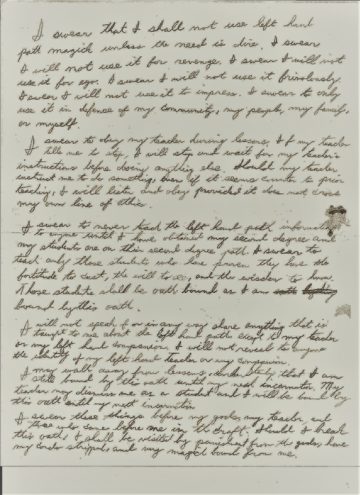 I swear that I shall not use left hand
path magick unless the need is dire. I swear
I will not use it for revenge. I swear I will not
use it for ego. I swear I will not use it frivolously.
I swear I will not use it to impress. I swear to only
use it in defence of my community, my people, my family,
or myself.
I swear to obey my teacher during lessons. If my teacher
tells me to stop, I will stop and wait for my teacher's
instructions before doing anything else. Should my teacher
instruct me to do something, even if it seems counter to prior
teaching, I will listen and obey provided it does not cross
my own line of ethics.
I swear to never teach the left hand path information
to anyone until I have obtained my second degree and
my students are on their second degree path. I swear to
teach only those students who have proven they have the
fortitude to the will to and the wisdom to know.
Those students shall be oath bound as I am
bound by this oath.
I will not speak of or in any way share anything that is
taught to me about the left hand path except to my teacher
or my left hand companions. I will not reveal to anyone
the identity of my left hand teacher or any companion.
I may walk away from lessons, understanding that I am
still bound by this oath until my next incarnation. My
teacher may dismiss me as a student and I will be bound by
this oath until my next incarnation.
I swear these things before my gods, my teacher, and
those who came before me in the craft. Should I break
this oath, I shall be visited by punishment from the gods, have
my cords stripped, and my magick bound from me.